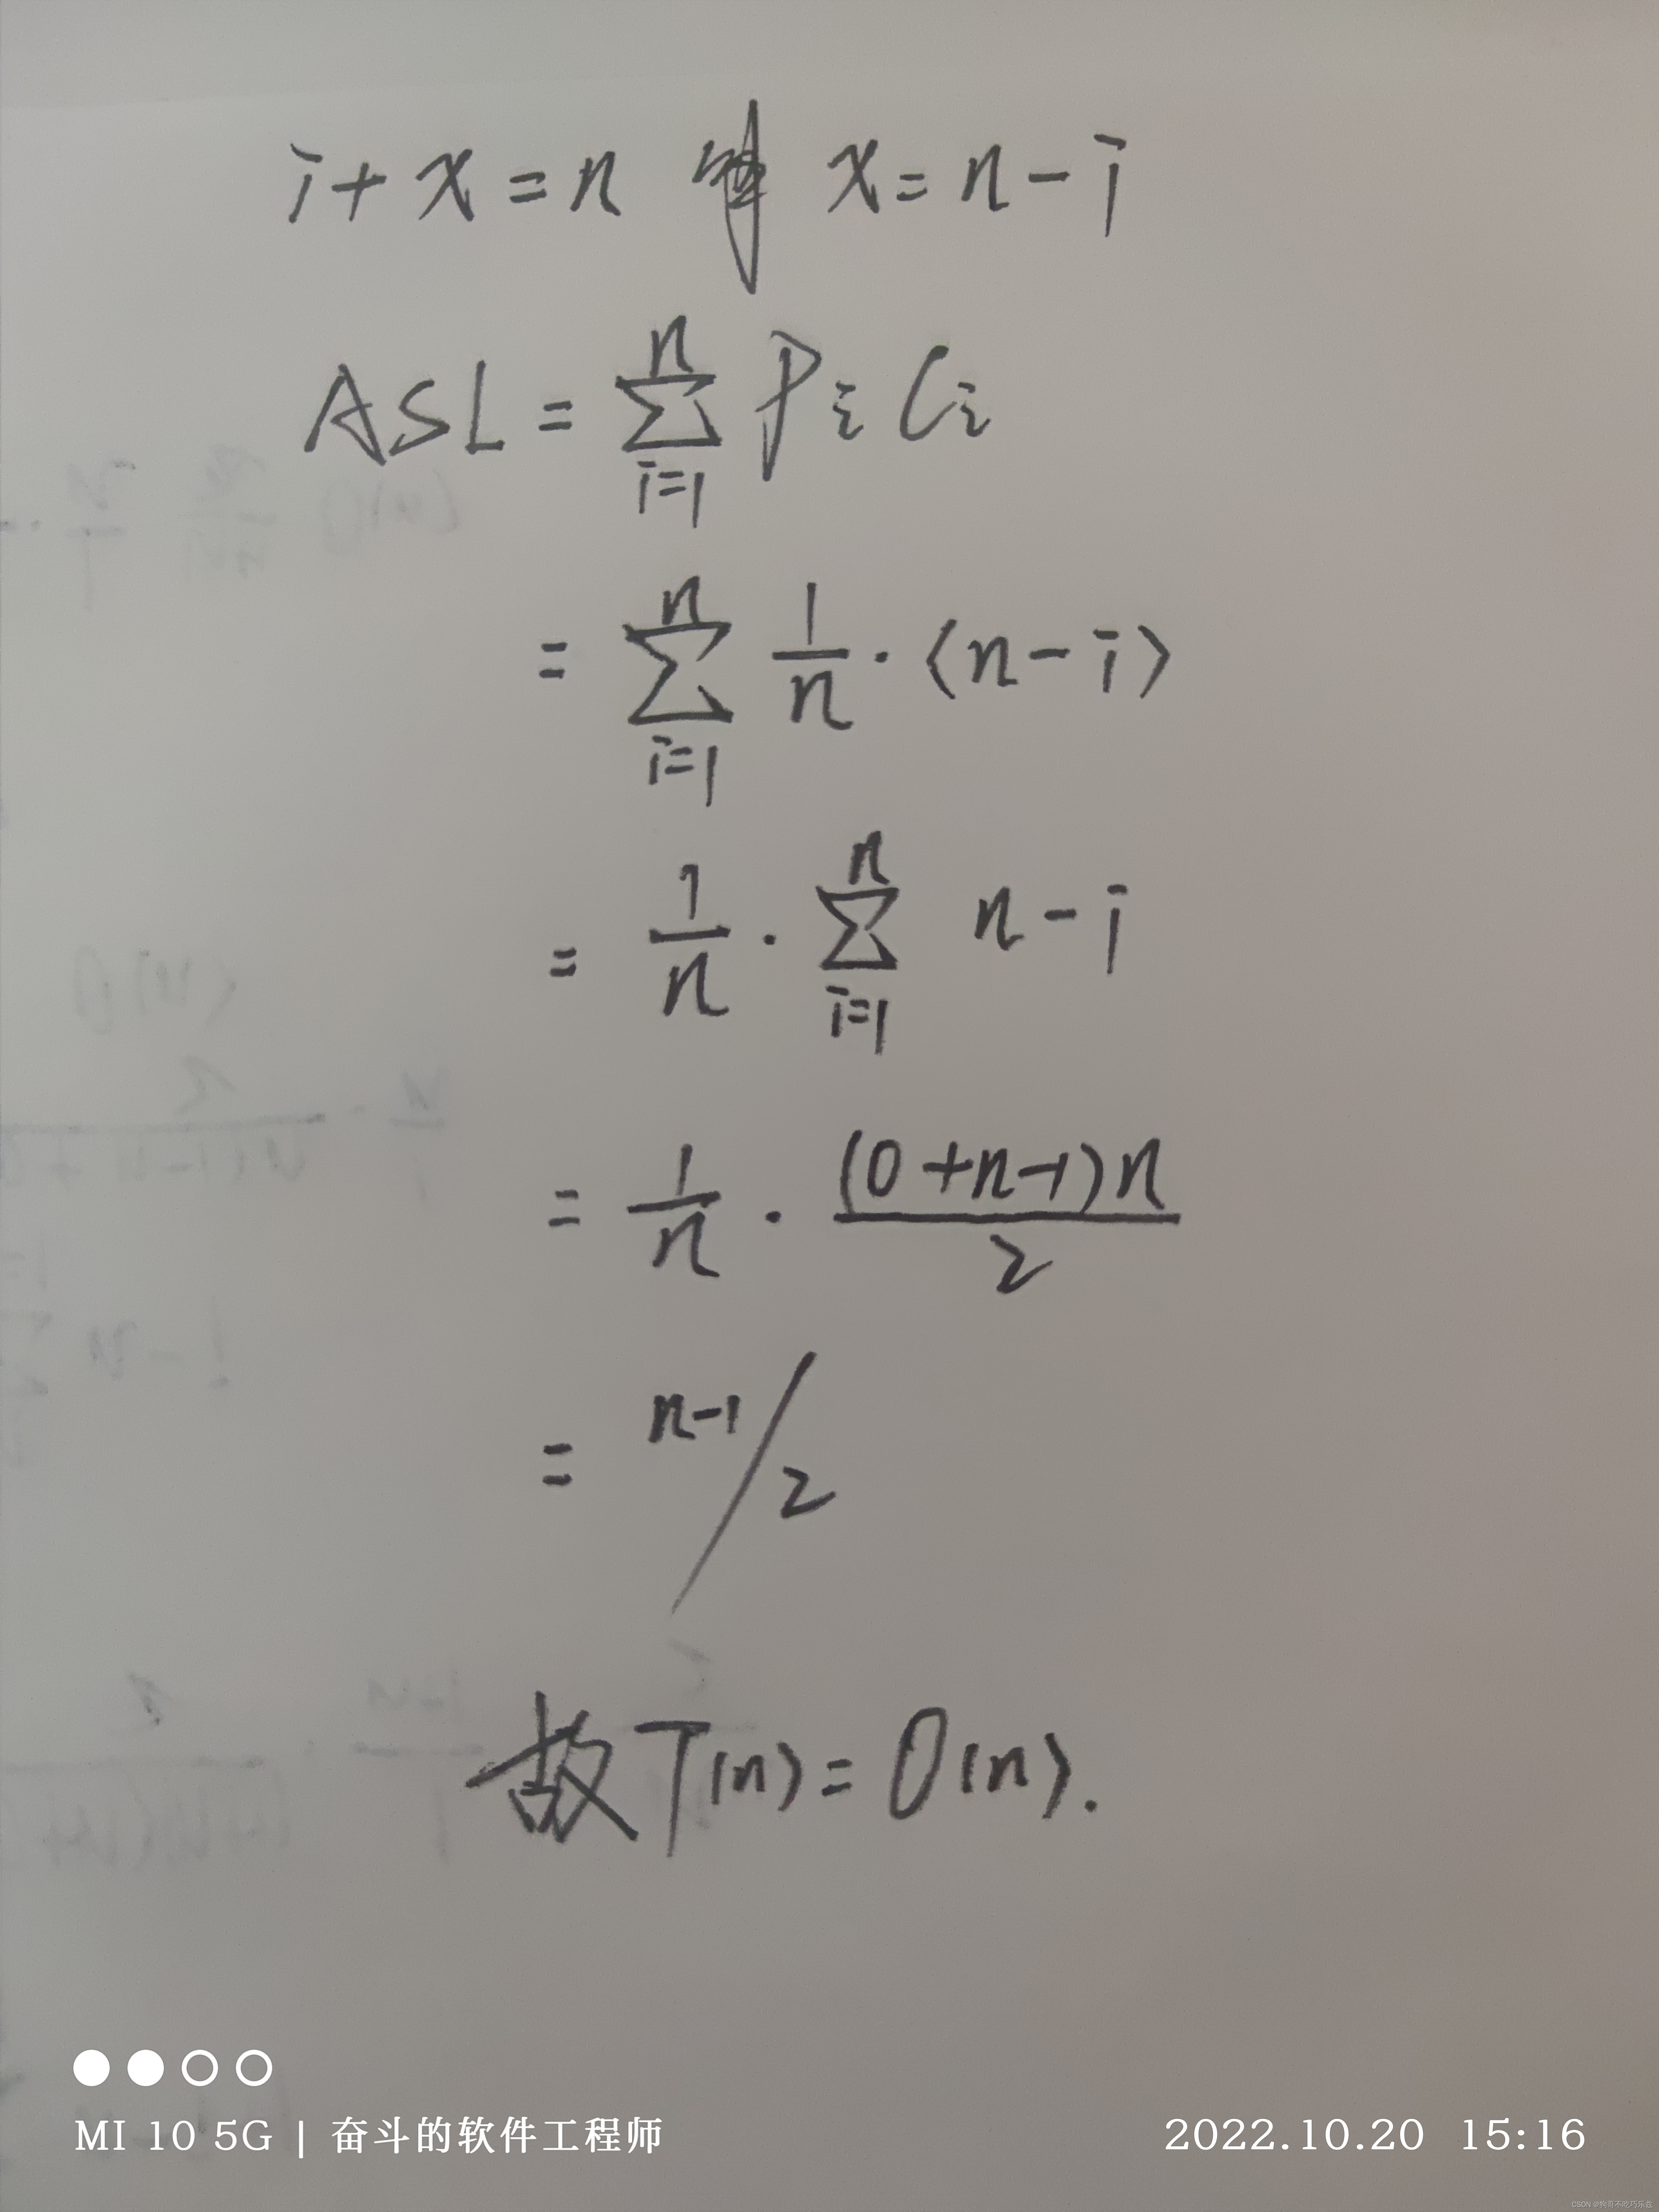 i + x = n 解 x = n - i
ASL = \sum_{i=1}^{n} P_i C_i
= \sum_{i=1}^{n} \frac{1}{n} · (n - i)
= \frac{1}{n} · \sum_{i=1}^{n} n - i
= \frac{1}{n} · \frac{(0 + n - 1) n}{2}
= n-1 / 2
故 T(n) = O(n).
MI 10 5G | 奋斗的软件工程师
2022.10.20 15:16